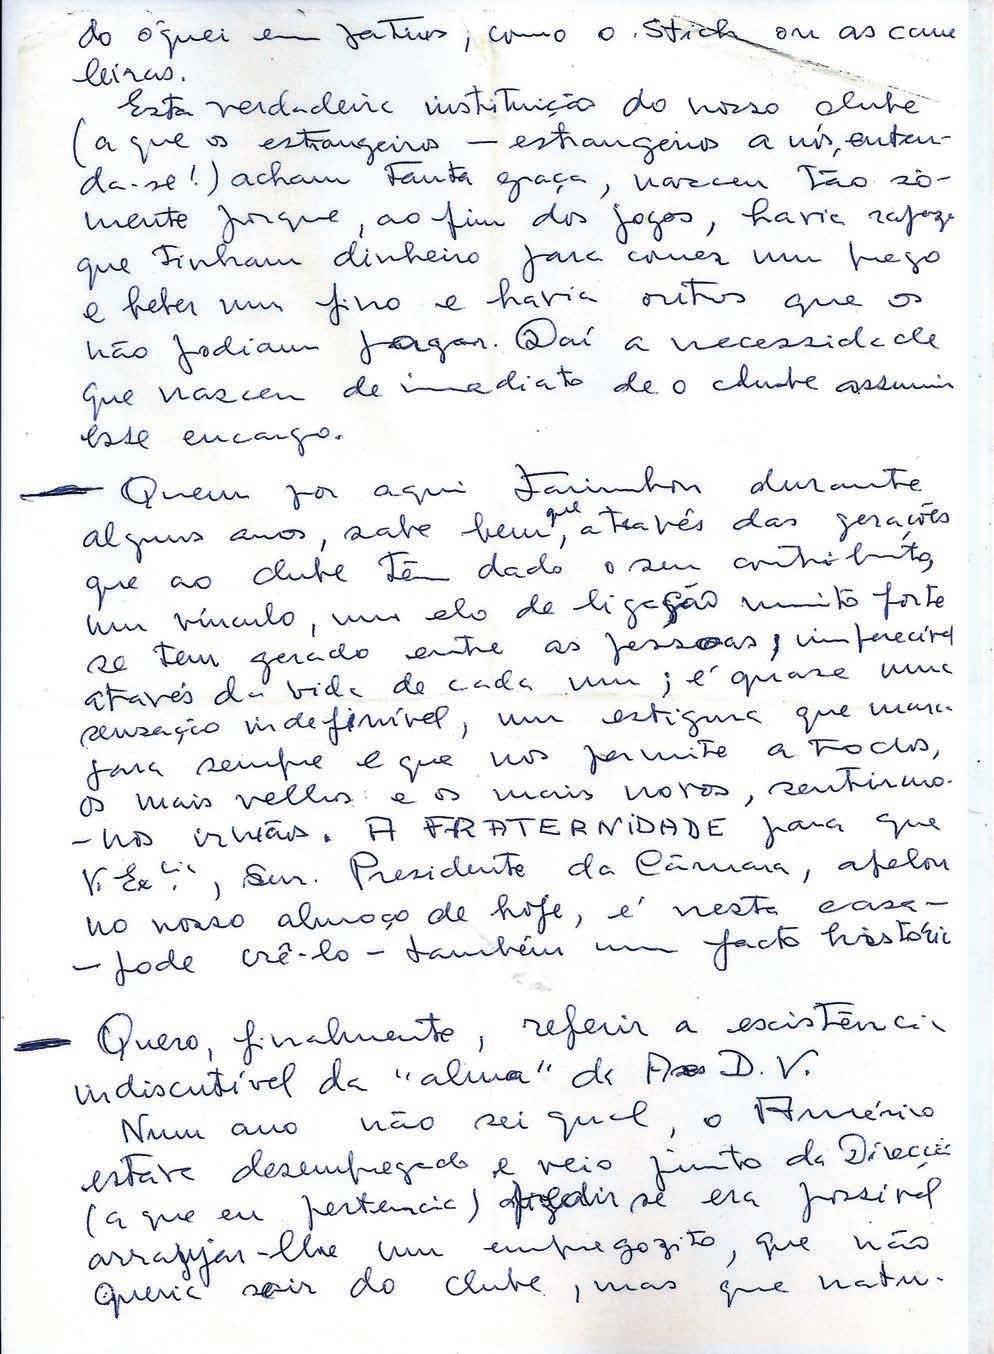 do óquei em patins, como o Stick ou as cane
leiras.
Esta verdadeira instituição do nosso clube
(a que os estrangeiros — estrangeiros a nós, enten-
da-se!) acham tanta graça, nasceu tão sò-
mente porque, ao fim dos jogos, havia rapaze
que tinham dinheiro para comer um prego
e beber um fino e havia outros que os
não podiam pagar. Daí a necessidade
que nasceu de imediato de o clube assumir
esse encargo.
— Quem por aqui tarimbou durante
alguns anos, sabe bem que, através das gerações
que ao clube têm dado o seu contributo,
um vínculo, um elo de ligação muito forte
se tem gerado entre as pessoas, imperecível
através da vida de cada um; é quase uma
sensação indefinível, um estigma que marca
para sempre e que nos permite a todos,
os mais velhos e os mais novos, sentirmo-
-nos irmãos. A FRATERNIDADE para que
V. Ex.cia, Snr. Presidente da Câmara, apelou
no nosso almoço de hoje, é nesta casa -
- pode crê-lo - também um facto históric
— Quero, finalmente, referir a existência
indiscutível da "alma" da A. D. V.
Num ano não sei qual, o Américo
estava desempregado e veio junto da Direcçã
(a que eu pertencia) pedir se era possível
arranjar-lhe um empregozito, que não
queria sair do clube, mas que natu-